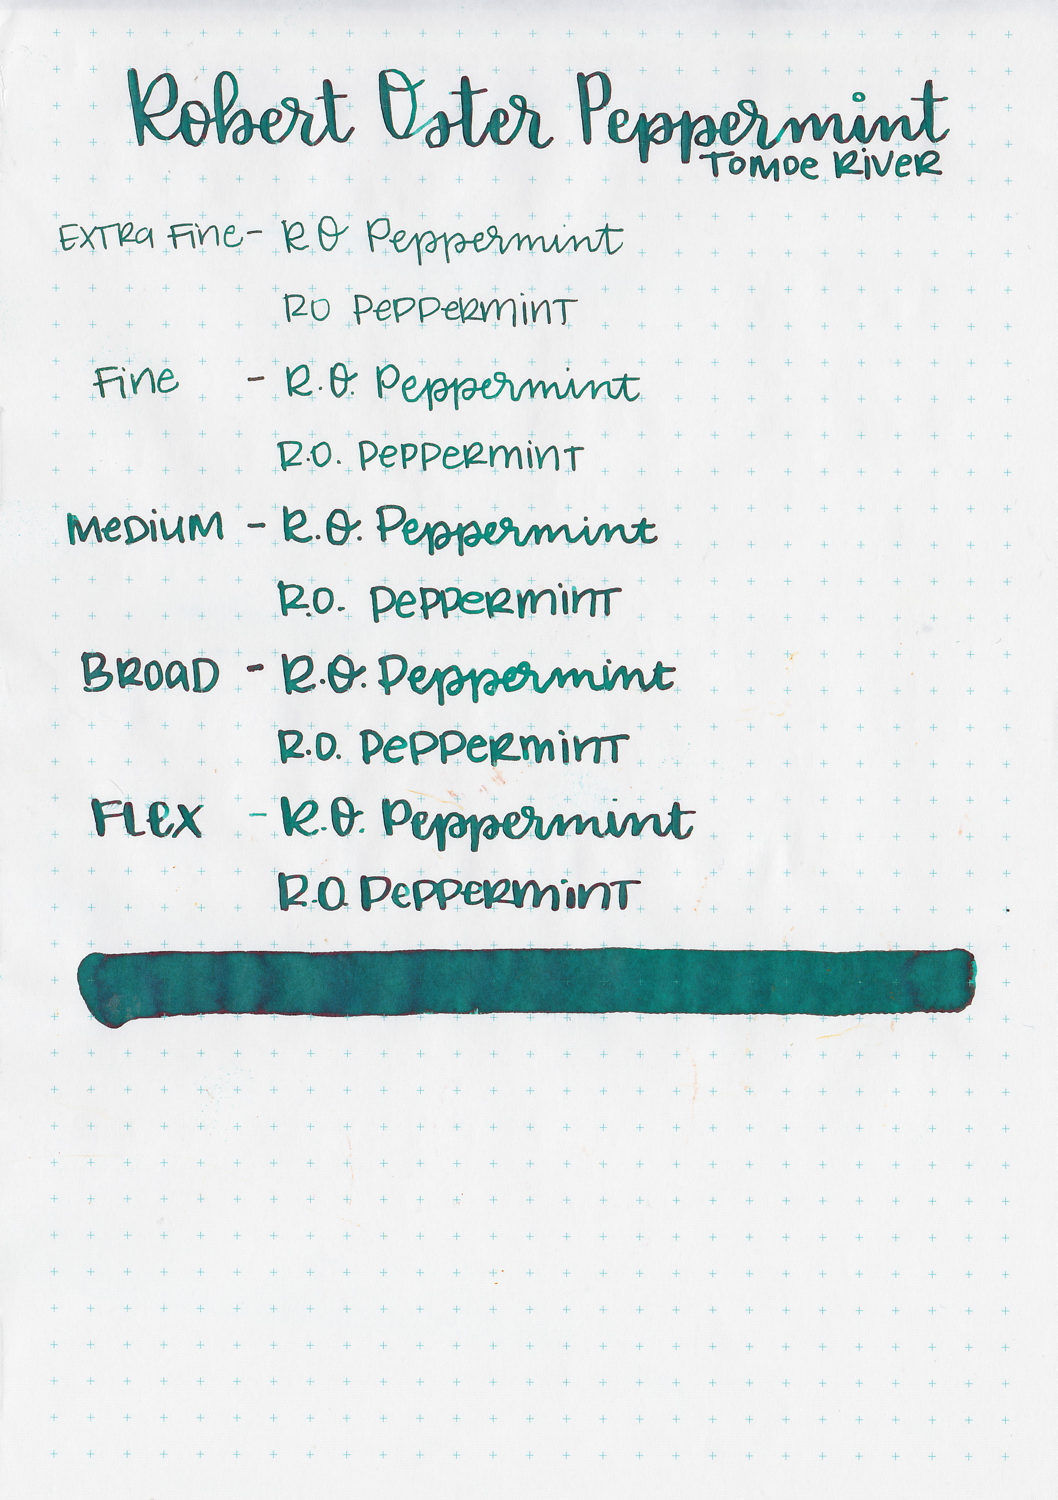 Robert Oster Peppermint
TOMOE RIVER
EXTRa Fine - R O Peppermint
RO PePPeRminT
Fine - R.O. Peppermint
R.O. PePPeRminT
MeDiUM - R.O. Peppermint
R.O. PePPeRminT
BROaD - R.O. Peppermint
R.O. PePPeRminT
FLeX - R.O. Peppermint
R.O PePPeRminT